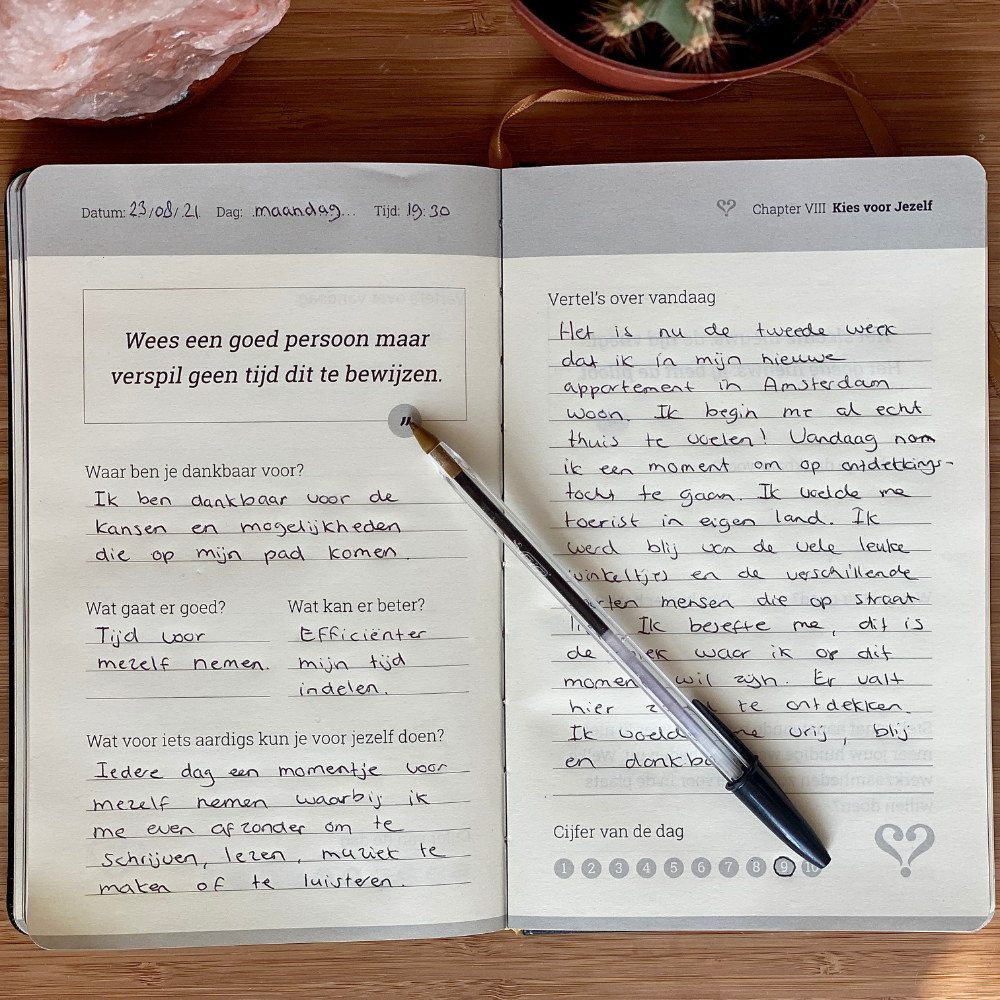 Datum: 23/08/.21. Dag: .maandag... Tijd: 19:30
Wees een goed persoon maar
verspil geen tijd dit te bewijzen.
"
Waar ben je dankbaar voor?
Ik ben dankbaar voor de
kansen en mogelijkheden
die op mijn pad komen.
Wat gaat er goed?
Tijd voor
mezelf nemen.
Wat kan er beter?
Efficiënter
mijn tijd
indelen.
Wat voor iets aardigs kun je voor jezelf doen?
Iedere dag een momentje voor
mezelf nemen waarbij ik
me even afzonder om te
schrijven, lezen, muziek te
maken of te luisteren.
Chapter VIII Kies voor Jezelf
Vertel's over vandaag
Het is nu de tweede week
dat ik in mijn nieuwe
appartement in Amsterdam
woon. Ik begin me al echt
thuis te voelen! Vandaag nam
ik een moment om op ontdekkings-
tocht te gaan. Ik voelde me
toerist in eigen land. Ik
werd blij van de vele leuke
winkeltjes en de verschillende
mensen die op straat
Ik besefte me, dit is
de waar ik op dit
moment wil zijn. Er valt
hier te ontdekken.
Ik voelde me vrij, blij
en
Cijfer van de dag
1 2 3 4 5 6 7 8 9 10